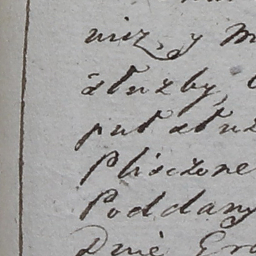 niz, y
służby,
puł służ
Pliszone
Poddany
Dnie Gro